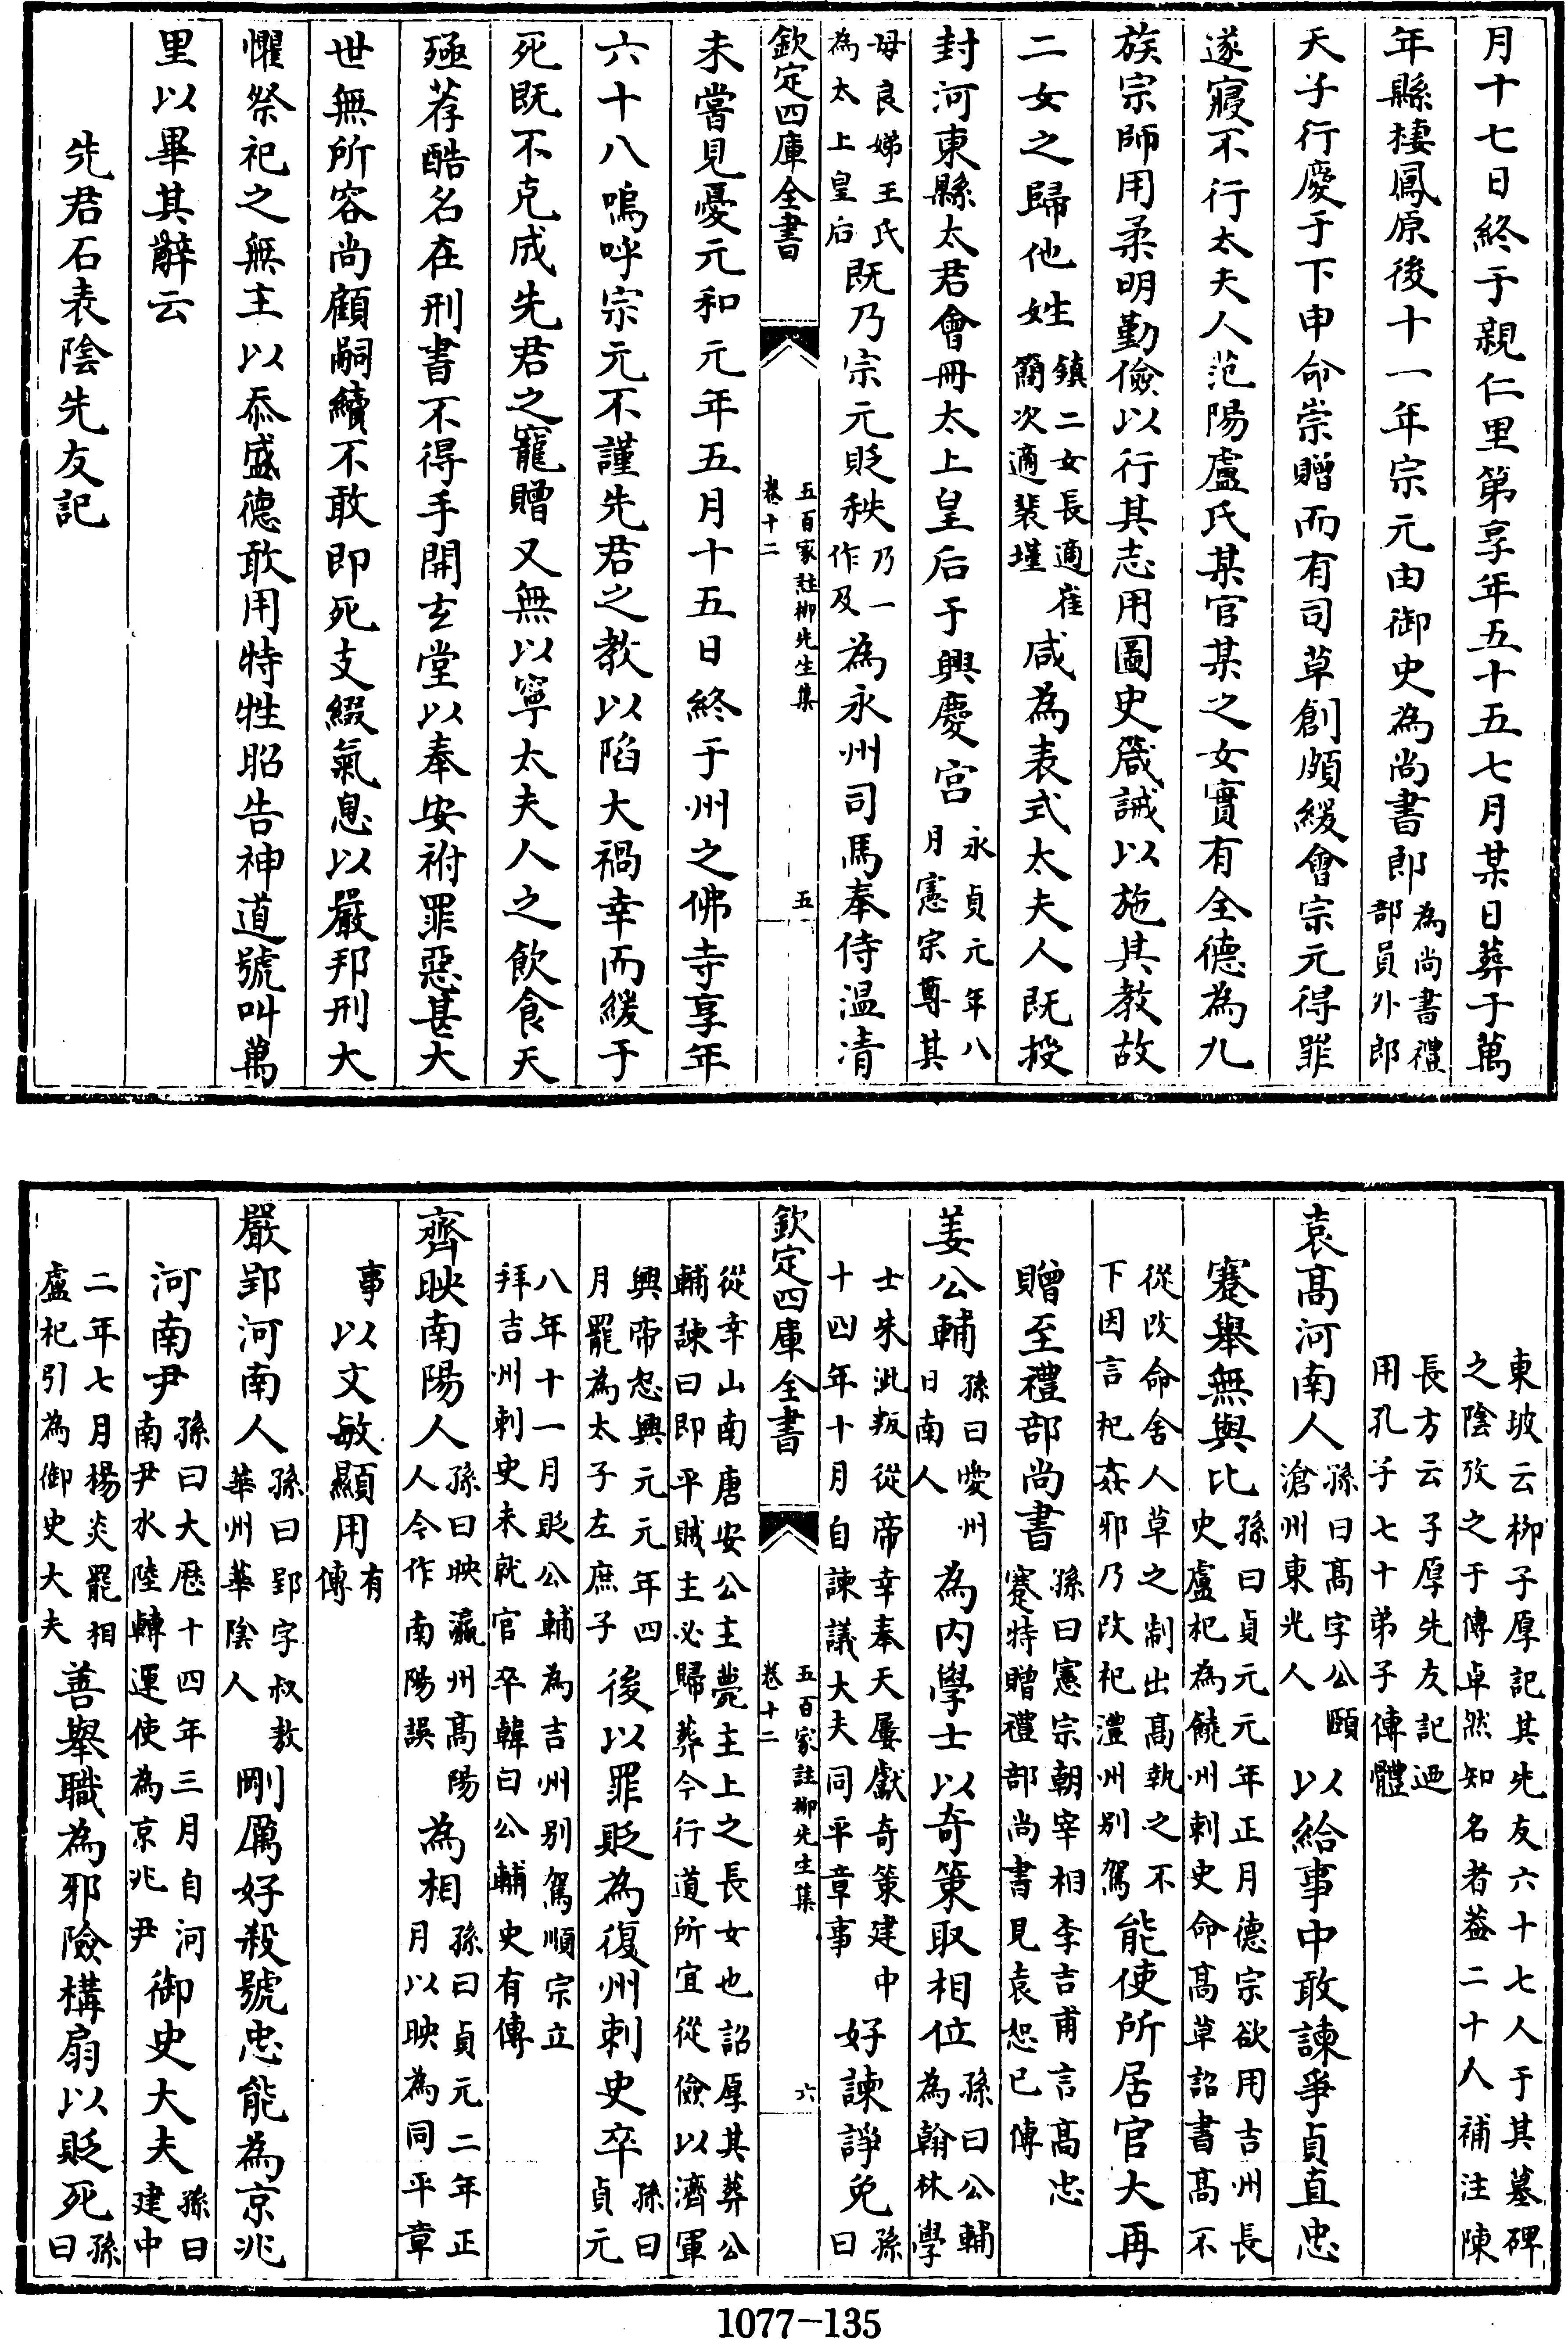 月十七日終于親仁里第享年五十五七月某日葬于萬
年縣棲鳳原後十一年宗元由御史為尚書郎為尚書禮部員外郎
天子行慶于下申命崇贈而有司草創頗緩會宗元得罪
遂寢不行太夫人范陽盧氏某官某之女實有全德為九
族宗師用柔明勤儉以行其志用圖史箴誡以施其教故
二女之歸他姓鎮二女長適崔簡次適裴墐咸為表式太夫人既授
封河東縣太君會冊太上皇后于興慶宮永貞元年八月憲宗尊其
母良娣王氏為太上皇后既乃宗元貶秩乃一作及為永州司馬奉侍温凊
欽定四庫全書
五百家註柳先生集
卷十二
五
未嘗見憂元和元年五月十五日終于州之佛寺享年
六十八嗚呼宗元不謹先君之教以陷大禍幸而緩于
死既不克成先君之寵贈又無以寧太夫人之飲食天
殛荐酷名在刑書不得手開玄堂以奉安祔罪惡甚大
世無所容尚顧嗣續不敢即死支綴氣息以嚴邦刑大
懼祭祀之無主以忝盛德敢用特牲昭告神道號叫萬
里以畢其辭云
先君石表陰先友記
東坡云柳子厚記其先友六十七人于其墓碑
之陰攷之于傳卓然知名者葢二十人補注陳
長方云子厚先友記迺
用孔子七十弟子傳體
袁高河南人孫曰高字公頤滄州東光人以給事中敢諫爭貞直忠
蹇舉無與比孫曰貞元元年正月德宗欲用吉州長史盧杞為饒州刺史命高草詔書高不
從改命舍人草之制出高執之不下因言杞姦邪乃改杞澧州別駕能使所居官大再
贈至禮部尚書孫曰憲宗朝宰相李吉甫言高忠蹇特贈禮部尚書見袁恕己傳
姜公輔孫曰愛州日南人為内學士以奇策取相位孫曰公輔為翰林學
士朱泚叛從帝幸奉天屢獻奇策建中十四年十月自諫議大夫同平章事好諫諍免孫曰
欽定四庫全書
五百家註柳先生集
卷十二
六
從幸山南唐安公主薨主上之長女也詔厚其葬公
輔諫曰即平賊主必歸葬今行道所宜從儉以濟軍
興帝怒興元元年四月罷為太子左庶子後以罪貶為復州刺史卒孫曰貞元
八年十一月貶公輔為吉州別駕順宗立
拜吉州刺史未就官卒韓曰公輔史有傳
齊映南陽人孫曰映瀛州高陽人今作南陽誤為相孫曰貞元二年正月以映為同平章
事以文敏顯用有傳
嚴郢河南人孫曰郢字叔敖華州華陰人剛厲好殺號忠能為京兆
河南尹孫曰大厯十四年三月自河南尹水陸轉運使為京兆尹御史大夫孫曰建中
二年七月楊炎罷相盧杞引為御史大夫善舉職為邪險構扇以貶死孫曰
1077-135